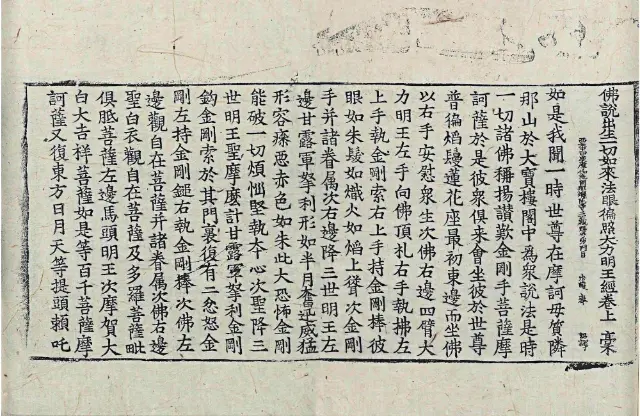 佛說出生一切如來法眼徧照大力明王經卷上
如是我聞一時世尊在摩訶毋質隣
那山於大寶樓閣中爲衆說法是時
一切諸佛稱揚讚歎金剛手菩薩摩
訶薩於是彼衆俱來會坐彼於世尊
普徧熖鬘蓮花座最初東邊而坐佛
以右手安慰衆生次佛右邊四臂大
力明王左手向佛頂札右手執拂左
上手執金剛索右上手持金剛棒彼
眼如朱髮如熾火如熖上聳次金剛
手并諸眷属次右邊降三世明王左
邊甘露軍拏利形如半月奮迅威猛
形容瘮惡赤色如朱此大恐怖金剛
能破一切煩惱堅執本心次聖降三
世明王聖摩麽計甘露軍拏利金剛
鈎金剛索於其門裏復有二忿怒金
剛左持金剛鎚右執金剛棒次佛左
邊觀自在菩薩并諸眷属次佛右邊
聖白衣觀自在菩薩及多羅菩薩毗
俱胝菩薩左邊馬頭明王次摩賀大
白大吉祥菩薩如是等百千菩薩摩
訶薩又復東方日月天等提頭頼吒